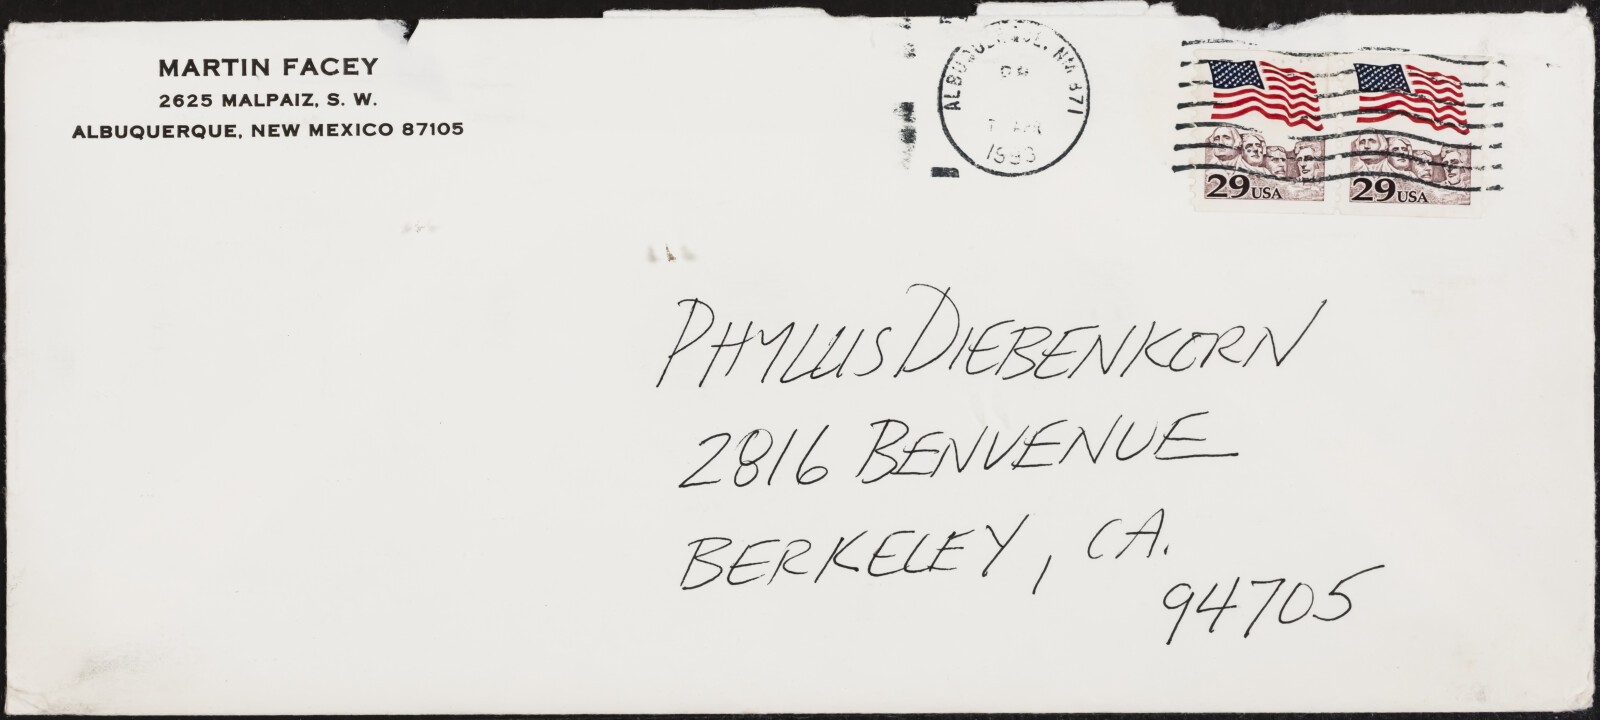 MARTIN FACEY
2625 MALPAIZ, S. W.
ALBUQUERQUE, NEW MEXICO 87105
ALBUQUERQUE, NM 871
PM
7 APR
1993
29 USA
29 USA
PHYLLIS DIEBENKORN
2816 BENVENUE
BERKELEY, CA.
94705